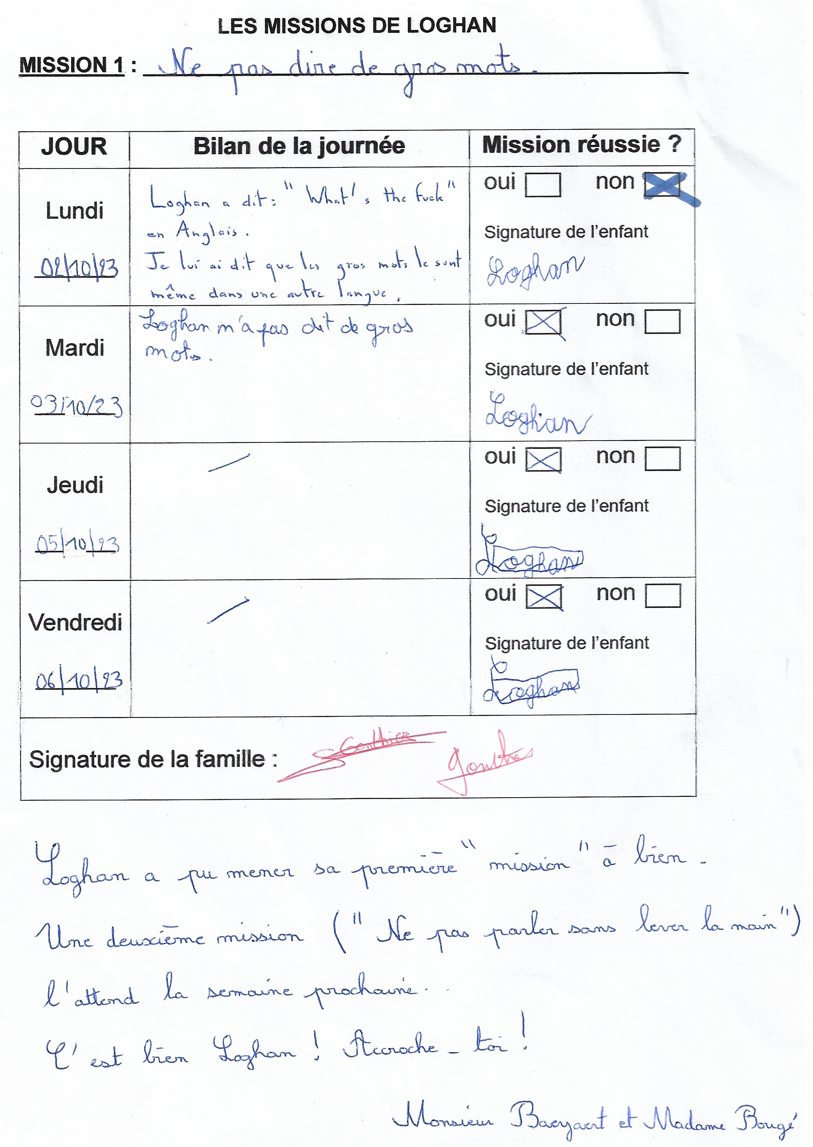 LES MISSIONS DE LOGHAN
MISSION 1 : Ne pas dire de gros mots.
JOUR Bilan de la journée Mission réussie ?
Lundi
02/10/23
Loghan a dit : " What's the fuck "
en Anglais.
Je lui ai dit que les gros mots le sont
même dans une autre langue.
oui non
Signature de l'enfant
Loghan
Mardi
03/10/23
Loghan n'a pas dit de gros
mots.
oui non
Signature de l'enfant
Loghan
Jeudi
05/10/23
oui non
Signature de l'enfant
Loghan
Vendredi
06/10/23
oui non
Signature de l'enfant
Loghan
Signature de la famille :
Loghan a pu mener sa première " mission " à bien.
Une deuxième mission (" Ne pas parler sans lever la main")
l'attend la semaine prochaine.
C'est bien Loghan ! Accroche-toi !
Monsieur et Madame Bougé